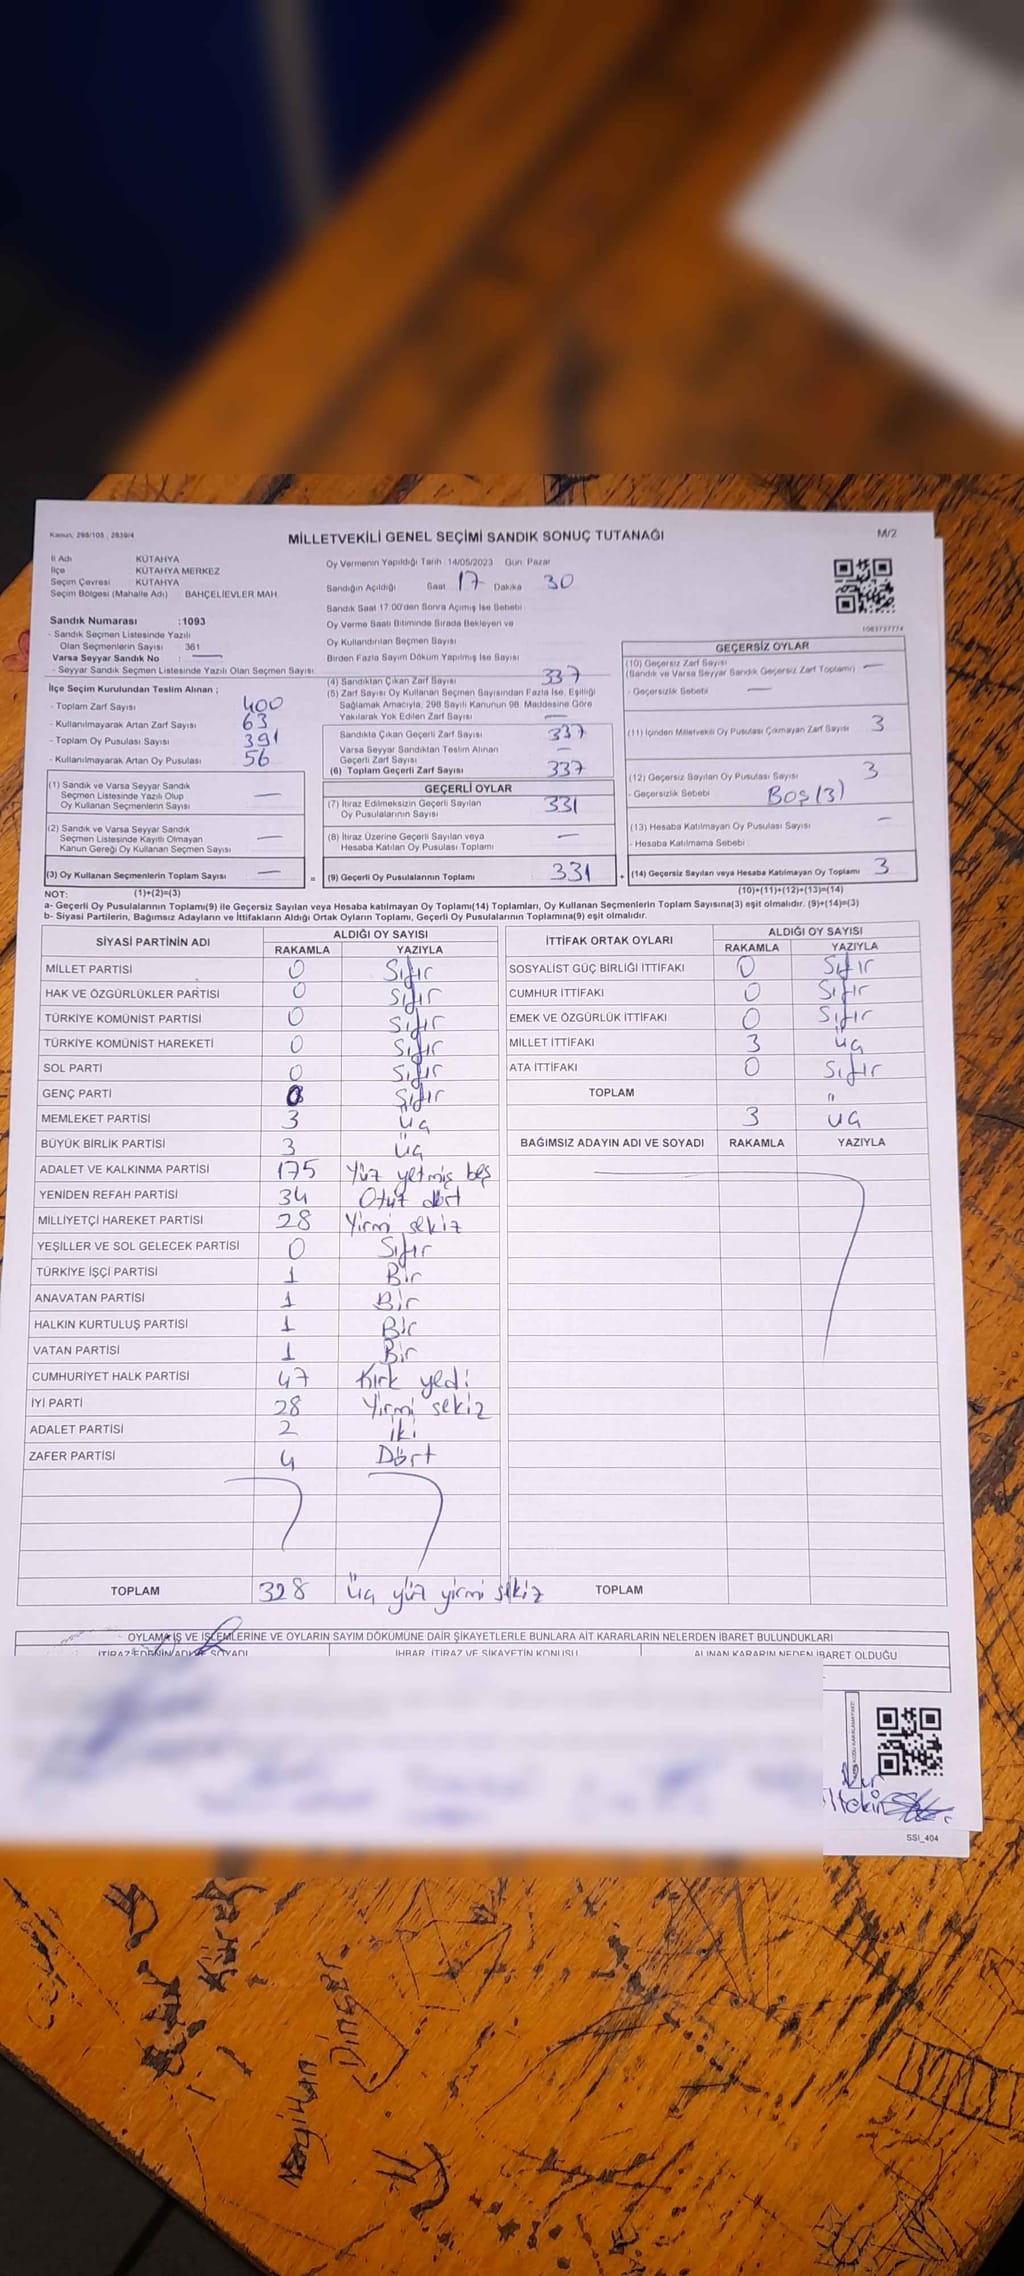 Kanun: 298/105 ; 2839/4
MİLLETVEKİLİ GENEL SEÇİMİ SANDIK SONUÇ TUTANAĞI
M/2
İl Adı KÜTAHYA
İlçe KÜTAHYA MERKEZ
Seçim Çevresi : KÜTAHYA
Seçim Bölgesi (Mahalle Adı) BAHÇELİEVLER MAH.
Sandık Numarası :1093
- Sandık Seçmen Listesinde Yazılı
Olan Seçmenlerin Sayısı 361
Varsa Seyyar Sandık No :
- Seyyar Sandık Seçmen Listesinde Yazılı Olan Seçmen Sayısı:
İlçe Seçim Kurulundan Teslim Alınan ;
- Toplam Zarf Sayısı 400
- Kullanılmayarak Artan Zarf Sayısı 63
- Toplam Oy Pusulası Sayısı 391
- Kullanılmayarak Artan Oy Pusulası 56
(1) Sandık ve Varsa Seyyar Sandık
Seçmen Listesinde Yazılı Olup
Oy Kullanan Seçmenlerin Sayısı —
(2) Sandık ve Varsa Seyyar Sandık
Seçmen Listesinde Kayıtlı Olmayan
Kanun Gereği Oy Kullanan Seçmen Sayısı —
(3) Oy Kullanan Seçmenlerin Toplam Sayısı —
Oy Vermenin Yapıldığı Tarih : 14/05/2023 Gün: Pazar
Sandığın Açıldığı Saat 17 Dakika 30
Sandık Saat 17:00'den Sonra Açılmış İse Sebebi
Oy Verme Saati Bitiminde Sırada Bekleyen ve
Oy Kullandırılan Seçmen Sayısı
Birden Fazla Sayım Döküm Yapılmış İse Sayısı
(4) Sandıktan Çıkan Zarf Sayısı 337
(5) Zarf Sayısı Oy Kullanan Seçmen Sayısından Fazla İse, Eşitliği
Sağlamak Amacıyla, 298 Sayılı Kanunun 98. Maddesine Göre
Yakılarak Yok Edilen Zarf Sayısı —
Sandıkta Çıkan Geçerli Zarf Sayısı 337
Varsa Seyyar Sandıktan Teslim Alınan
Geçerli Zarf Sayısı —
(6) Toplam Geçerli Zarf Sayısı 337
GEÇERLİ OYLAR
(7) İtiraz Edilmeksizin Geçerli Sayılan
Oy Pusulalarının Sayısı 331
(8) İtiraz Üzerine Geçerli Sayılan veya
Hesaba Katılan Oy Pusulası Toplamı —
= (9) Geçerli Oy Pusulalarının Toplamı 331 +
1083737774
GEÇERSİZ OYLAR
(10) Geçersiz Zarf Sayısı
(Sandık ve Varsa Seyyar Sandık Geçersiz Zarf Toplamı) —
- Geçersizlik Sebebi —
(11) İçinden Milletvekili Oy Pusulası Çıkmayan Zarf Sayısı 3
(12) Geçersiz Sayılan Oy Pusulası Sayısı 3
- Geçersizlik Sebebi BOŞ (3)
(13) Hesaba Katılmayan Oy Pusulası Sayısı —
- Hesaba Katılmama Sebebi
(14) Geçersiz Sayılan veya Hesaba Katılmayan Oy Toplamı 3
NOT: (1)+(2)=(3) (10)+(11)+(12)+(13)=(14)
a- Geçerli Oy Pusulalarının Toplamı(9) ile Geçersiz Sayılan veya Hesaba katılmayan Oy Toplamı(14) Toplamları, Oy Kullanan Seçmenlerin Toplam Sayısına(3) eşit olmalıdır. (9)+(14)=(3)
b- Siyasi Partilerin, Bağımsız Adayların ve İttifakların Aldığı Ortak Oyların Toplamı, Geçerli Oy Pusulalarının Toplamına(9) eşit olmalıdır.
SİYASİ PARTİNİN ADI ALDIĞI OY SAYISI
RAKAMLA YAZIYLA
MİLLET PARTİSİ 0 Sıfır
HAK VE ÖZGÜRLÜKLER PARTİSİ 0 Sıfır
TÜRKİYE KOMÜNİST PARTİSİ 0 Sıfır
TÜRKİYE KOMÜNİST HAREKETİ 0 Sıfır
SOL PARTİ 0 Sıfır
GENÇ PARTİ 0 Sıfır
MEMLEKET PARTİSİ 3 Üç
BÜYÜK BİRLİK PARTİSİ 3 Üç
ADALET VE KALKINMA PARTİSİ 175 Yüz yetmiş beş
YENİDEN REFAH PARTİSİ 34 Otuz dört
MİLLİYETÇİ HAREKET PARTİSİ 28 Yirmi sekiz
YEŞİLLER VE SOL GELECEK PARTİSİ 0 Sıfır
TÜRKİYE İŞÇİ PARTİSİ 1 Bir
ANAVATAN PARTİSİ 1 Bir
HALKIN KURTULUŞ PARTİSİ 1 Bir
VATAN PARTİSİ 1 Bir
CUMHURİYET HALK PARTİSİ 47 Kırk yedi
İYİ PARTİ 28 Yirmi sekiz
ADALET PARTİSİ 2 iki
ZAFER PARTİSİ 4 Dört
TOPLAM 328 Üç yüz yirmi sekiz
İTTİFAK ORTAK OYLARI ALDIĞI OY SAYISI
RAKAMLA YAZIYLA
SOSYALİST GÜÇ BİRLİĞİ İTTİFAKI 0 Sıfır
CUMHUR İTTİFAKI 0 Sıfır
EMEK VE ÖZGÜRLÜK İTTİFAKI 0 Sıfır
MİLLET İTTİFAKI 3 Üç
ATA İTTİFAKI 0 Sıfır
TOPLAM 3 Üç
BAĞIMSIZ ADAYIN ADI VE SOYADI RAKAMLA YAZIYLA
TOPLAM
OYLAMA İŞ VE İŞLEMLERİNE VE OYLARIN SAYIM DÖKÜMÜNE DAİR ŞİKAYETLERLE BUNLARA AİT KARARLARIN NELERDEN İBARET BULUNDUKLARI
İTİRAZ EDENİN ADI VE SOYADI İHBAR, İTİRAZ VE ŞİKAYETİN KONUSU ALINAN KARARIN NEDEN İBARET OLDUĞU
SSİ_404
Dinçer